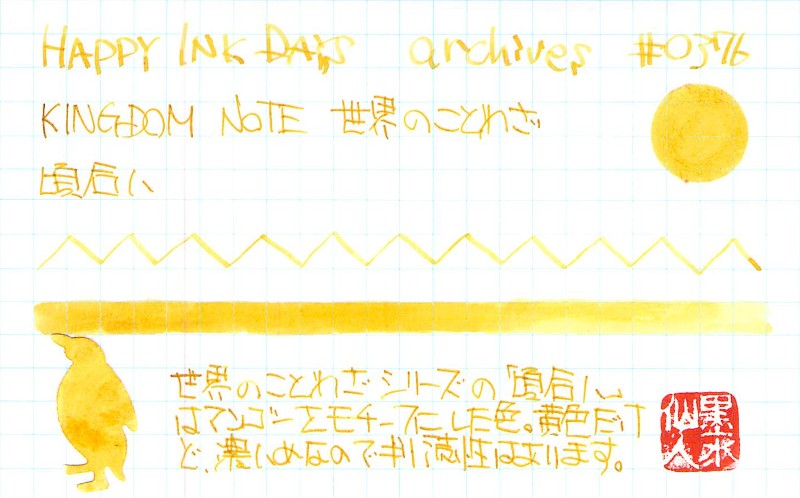 HAPPY INK DAYS archives #0376
KINGDOM NOTE 世界のことわざ
頃合い
世界のことわざシリーズの「頃合い」
はマンゴーをモチーフにした色。黄色だけ
ど、濃いめなので判読性はあります。
墨水
仙人